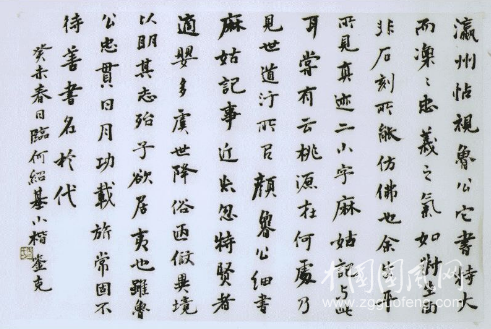 瀛州帖視魯公它書特大
而凜〻忠義之氣如對面
非石刻所能仿佛也余
所見真迹二小字麻姑記与此
耳嘗有云桃源在何處乃
見世道汙所召顏魯公細書
麻姑記事近忽特賢者
適嬰多虞世降俗倣異境
以明其志殆子欲居夷也雖魯
公忠貫日月功載旂常固不
待善書名於代
癸未春日臨何紹基小楷
www.zgguofeng.com